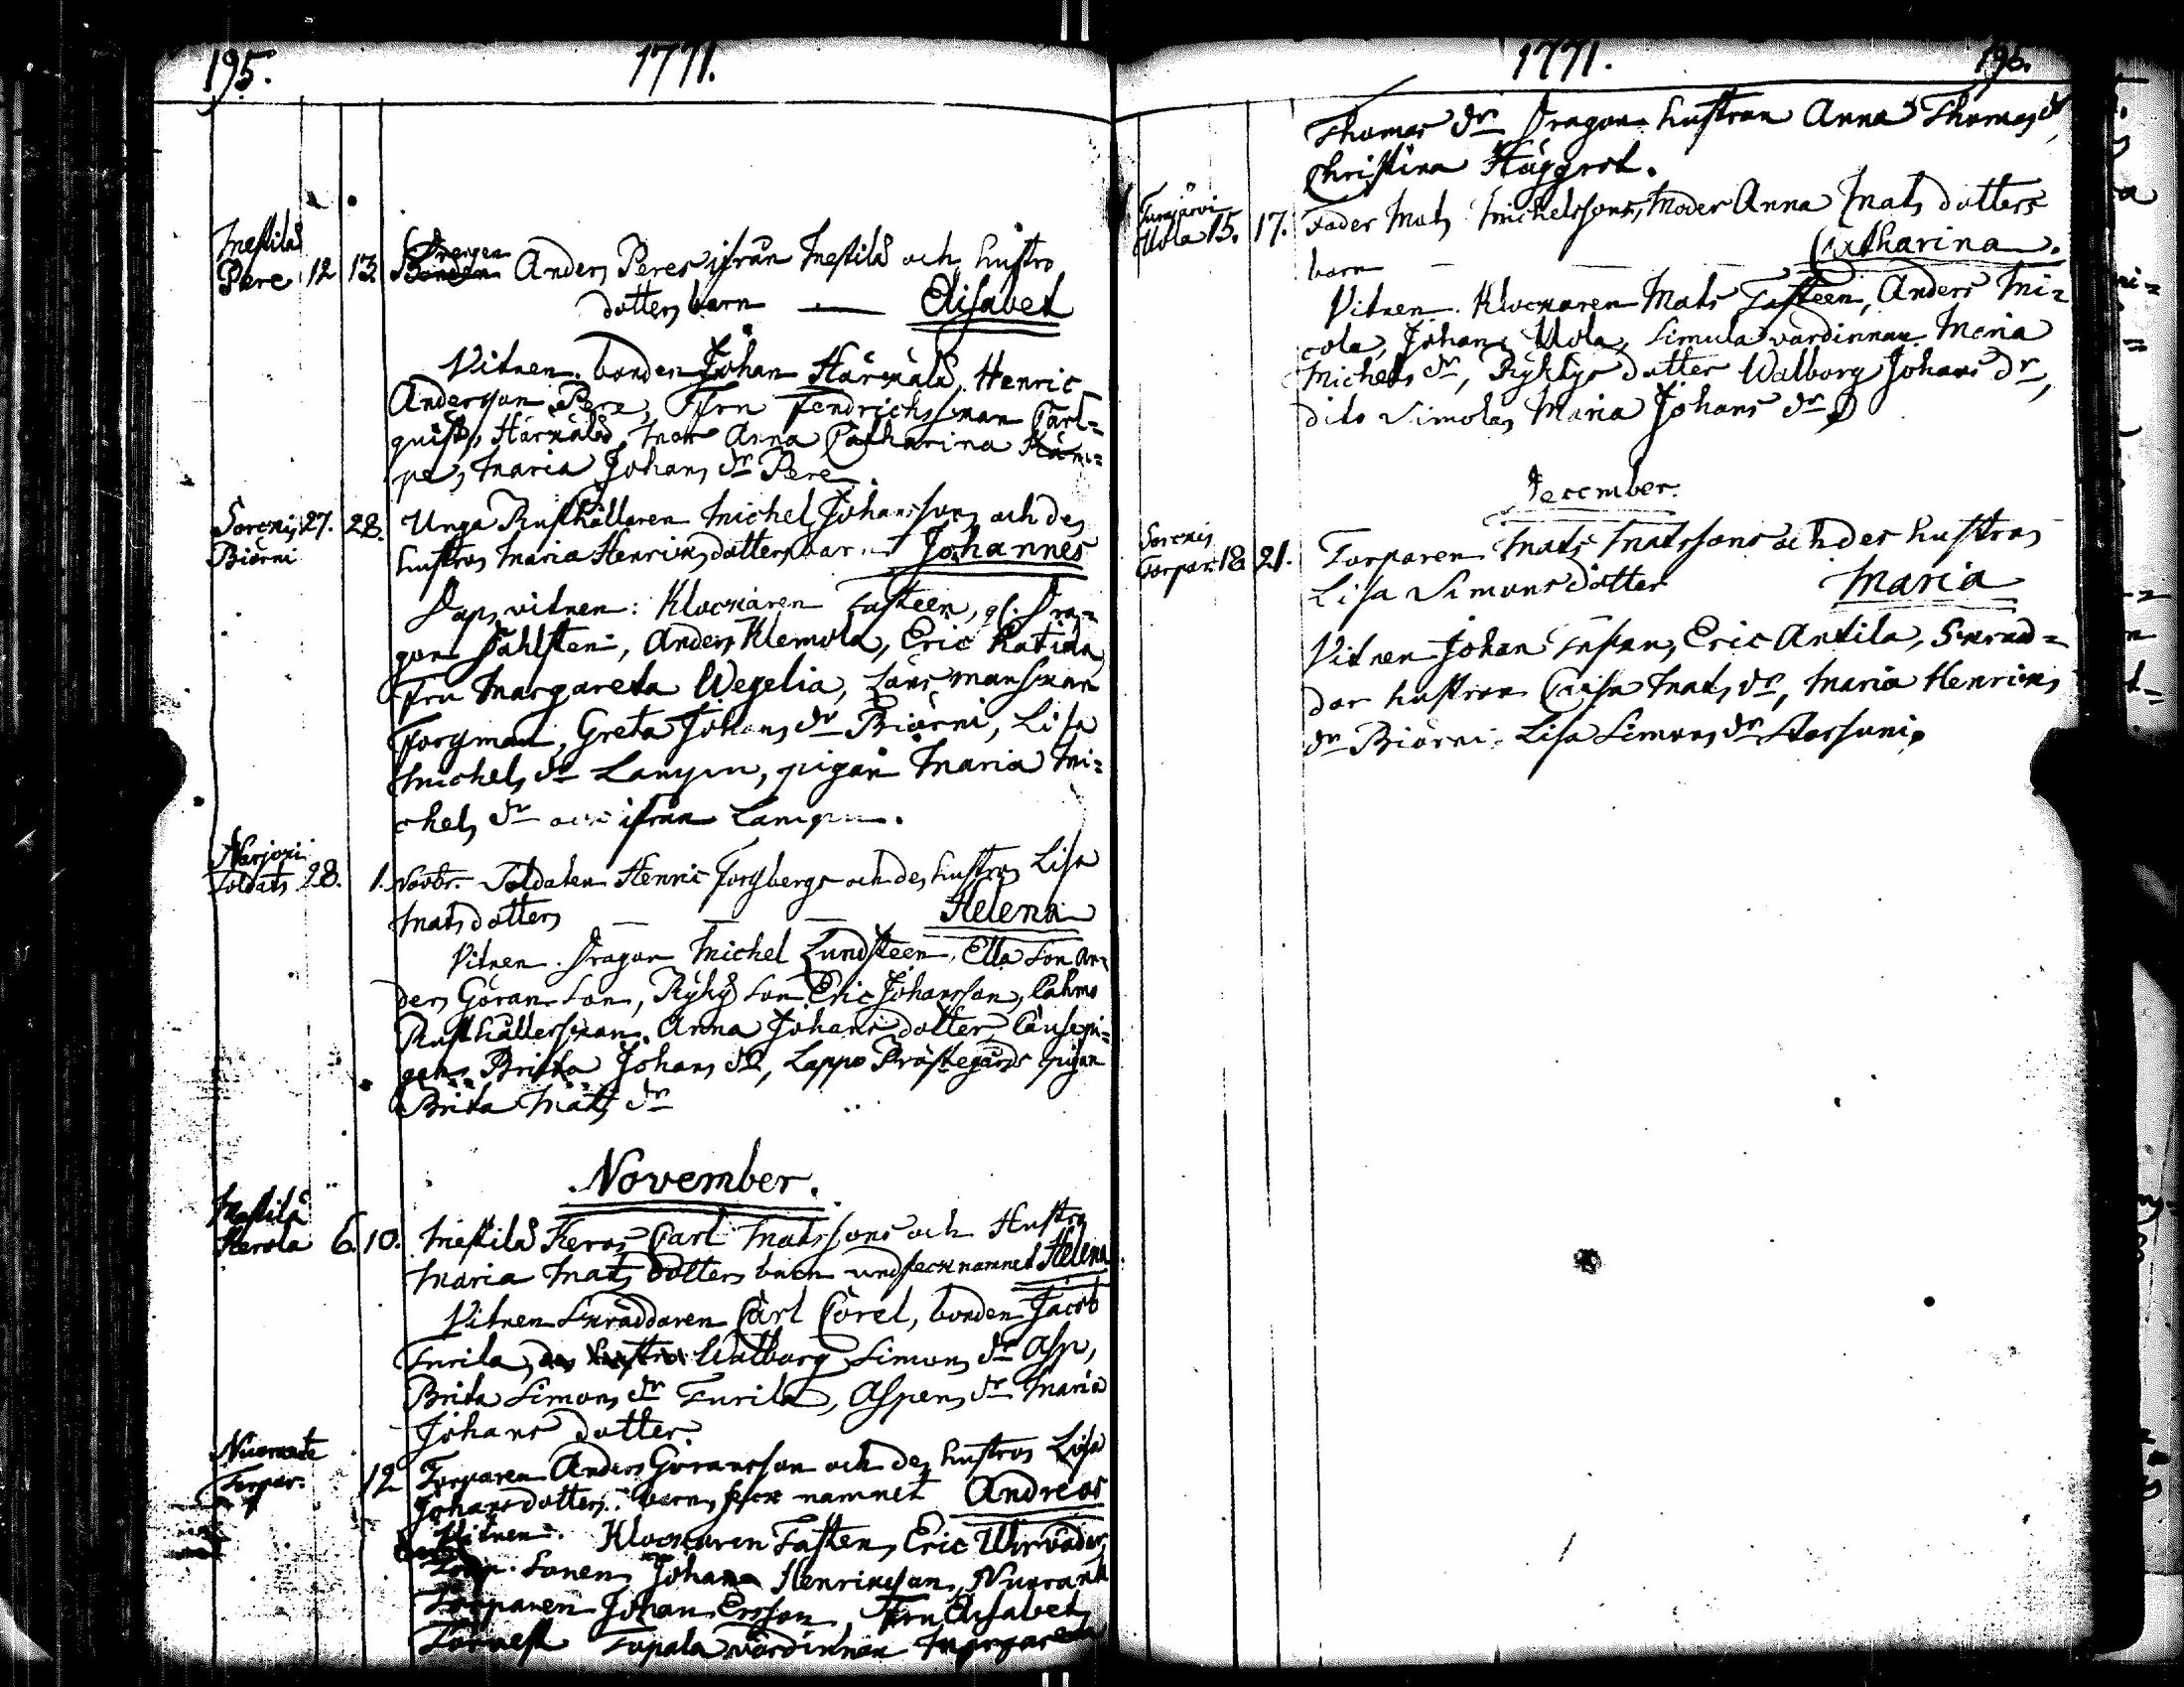 195.
1771.
Mestilä
Pere 12 13.
Drengen
Bonden Anders Peres ifrån Mestilä och hustro
dotters barn — Elisabet
Vitnen. bonden Johan Härmälä, Henric
Andersson Pere, Fru Fendrichskan Carl=
quist, Härmälä mor Anna Catharina Käm=
pe, Maria Johans dr Pere.
Sorcxis 27. 28.
Biörni
Unga Rusthållaren Michel Johanssons och des
hustros Maria Henrics dotters bar.. Johannes
Dops vitnen: Klockaren Fasteen, gl. Dra=
gon Dahlsten, Anders Klemola, Eric Ratian
Fru Margareta Wegelia, Länsmanskan
Forsman, Greta Johans dr Biörni, Lisa
Michels dr Lampu, pigan Maria Mi=
chels dr och ifrån Lampu.
Narjoxi
Soldats 28. 1.
Novbr. Soldaten Henric Forsbergs och des hustros Lisa
Matsdotters — — — Helena
Vitnen. Dragon Michel Lundsteen, Ella Son An=
ders Göransson, Rykys son Eric Johansson, Cahmo
Rusthållerskan Anna Johans dotter, Causepi=
gan Britta Johans dr, Lappo Prästegårds pigan
Brita Mats dr
November.
Mestilä
Kerola 6. 10.
Mestilä Keros Carl Matssons och Hustro
Maria Mats dotters barn undfeck namnet Helena
Vitnen Skräddaren Carl Corel, bonden Jacob
Turila, des hustro Walborg Simons dr Asp,
Brita Simons dr Turila, Aspens dr Maria
Johans dotter.
Torpar. 12
Torparen Anders Göransson och des hustros Lisa
Johansdotters barn, feck namnet Andreas
Vitnen. Klockaren Fasten, Eric
Sonen Johan Henricsson,
Torparen Johan Ersson, Fru Elisabet
Tornest Topala värdinnan Margareta
1771.
196.
Thomas dr Dragon hustran Anna Thomas dr,
Christina Häggrot.
Uola 15. 17.
Fader Mats Michelssons, Moder Anna Mats dotters
barn — — — Catharina.
Vitnen. Klockaren Mats Fasteen, Anders Mi=
cola, Johan Uola, Simula värdinnan Maria
Michels dr, Rykys dotter Walborg Johans dr,
dito Simolas Maria Johans dr
December.
Sorcxis
Torpar. 18 21.
Torparen Mats Matssons och des hustros
Lisa Simons dotter Maria
Vitnen Johan Eric Antila, Skräd=
dar hustran Caisa Mats dr, Maria Henrics
dr Biörni, Lisa Simons dr